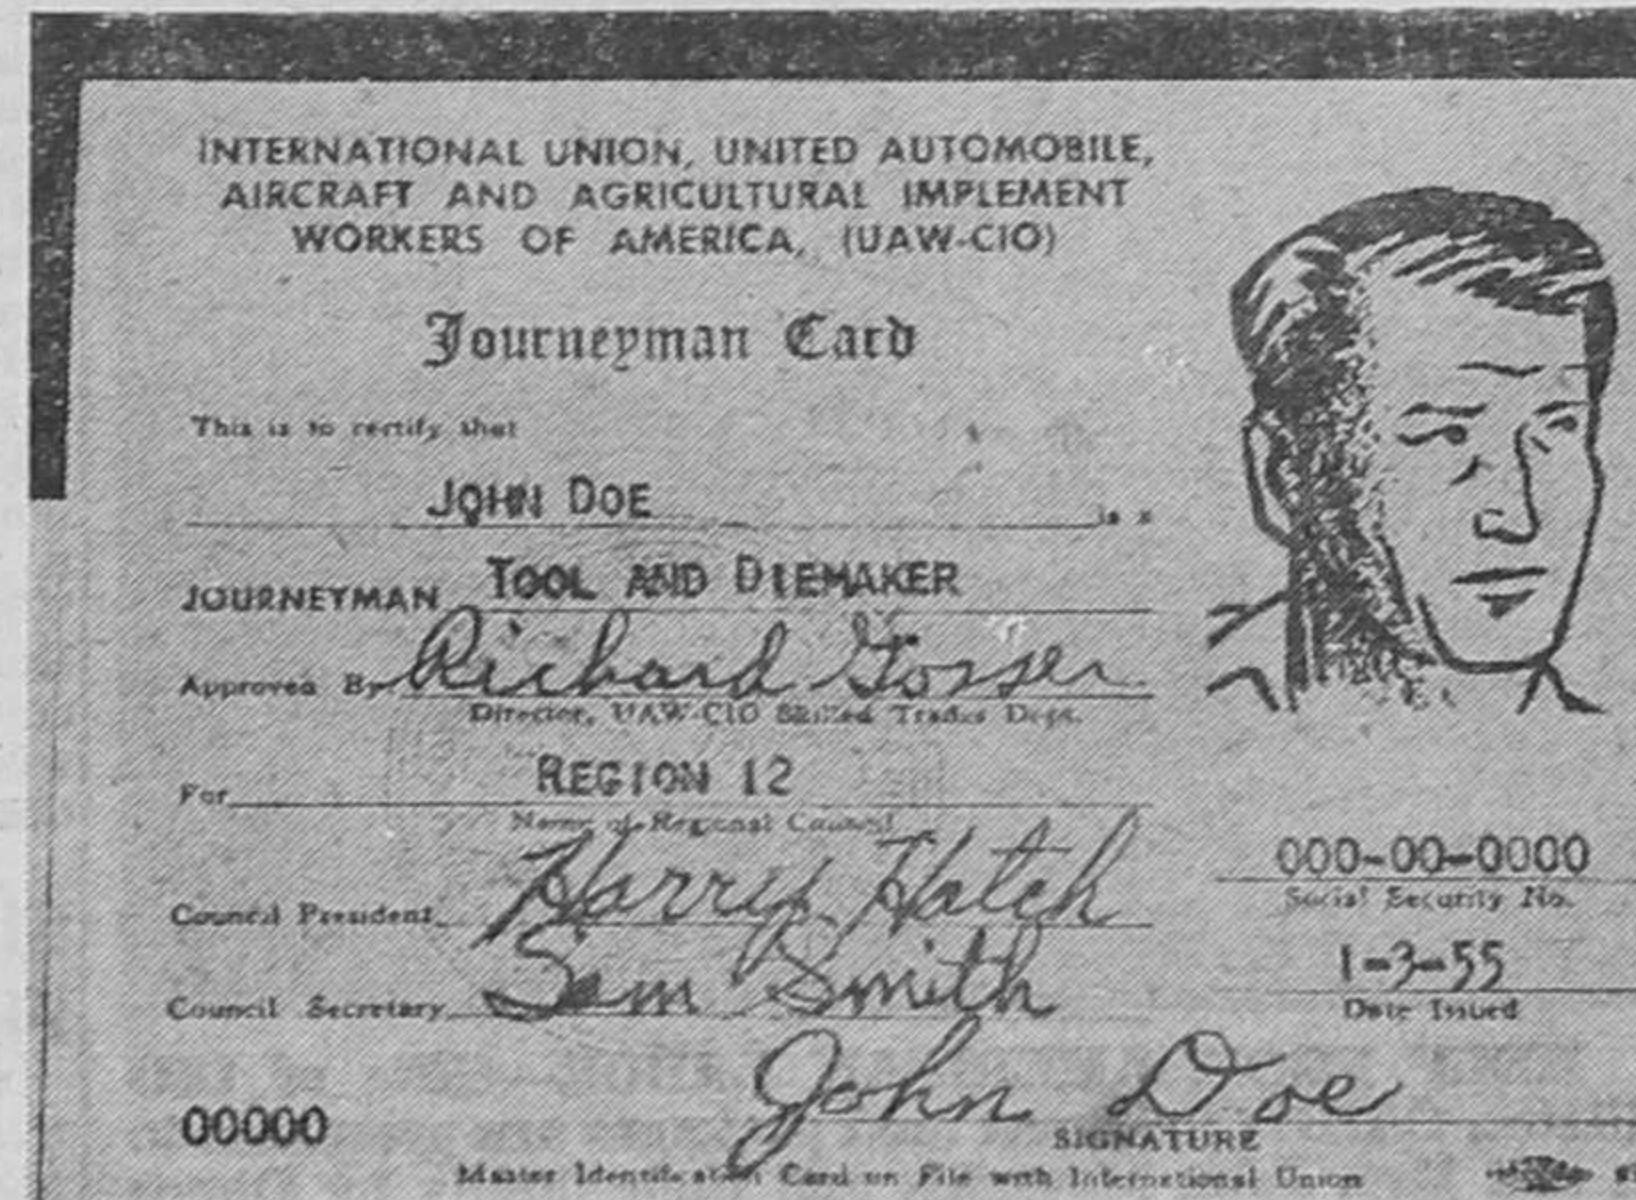 INTERNATIONAL UNION, UNITED AUTOMOBILE,
AIRCRAFT AND AGRICULTURAL IMPLEMENT
WORKERS OF AMERICA, (UAW-CIO)
Journeyman Card
This is to certify that
JOHN DOE is a
JOURNEYMAN TOOL AND DIEMAKER
Approved By Richard Gosser
Director, UAW-CIO Skilled Trades Dept.
For REGION 12
Name of Regional Council
Council President Harry Hatch
000-00-0000
Social Security No.
Council Secretary Sam Smith
1-3-55
Date Issued
John Doe
00000
SIGNATURE
Master Identification Card on File with International Union